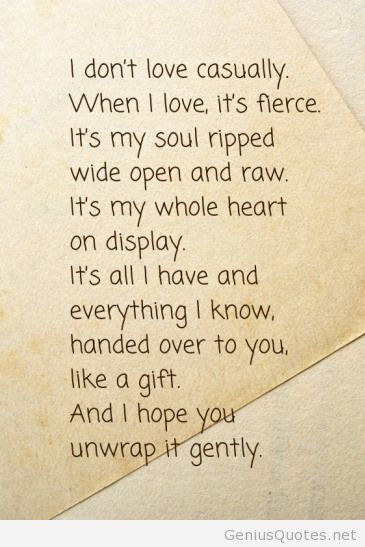 I don't love casually.
When I love, it's fierce.
It's my soul ripped
wide open and raw.
It's my whole heart
on display.
It's all I have and
everything I know,
handed over to you,
like a gift.
And I hope you
unwrap it gently.
GeniusQuotes.net